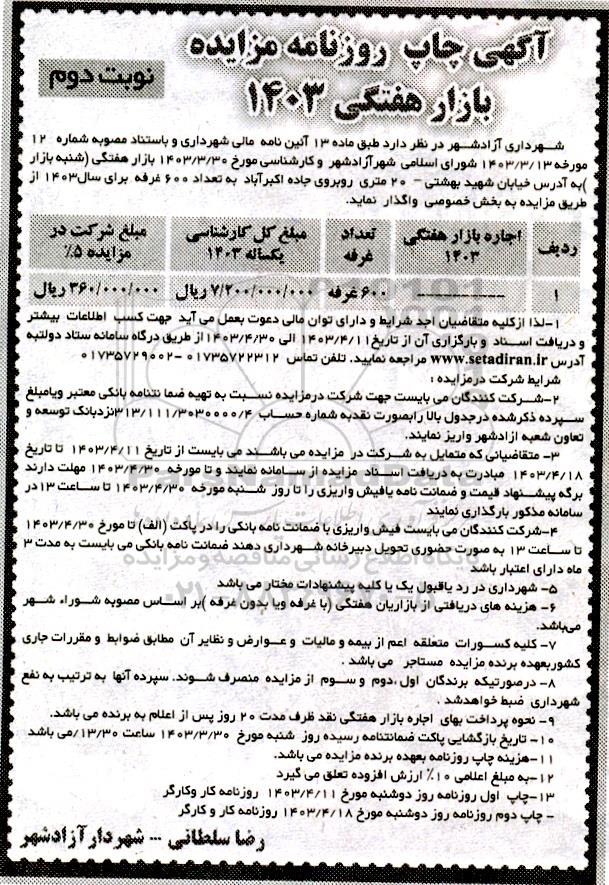 آگهی چاپ روزنامه مزایده
بازار هفتگی ۱۴۰۳
نوبت دوم
شهرداری آزادشهر در نظر دارد طبق ماده ۱۳ آئین نامه مالی شهرداری و باستناد مصوبه شماره ۱۲
مورخه ۱۴۰۳/۳/۱۳ شورای اسلامی شهرآزادشهر و کارشناسی مورخ ۱۴۰۳/۳/۳۰ بازار هفتگی (شنبه بازار
)به آدرس خیابان شهید بهشتی – ۲۰ متری روبروی جاده اکبرآباد به تعداد ۶۰۰ غرفه برای سال۱۴۰۳ از
طریق مزایده به بخش خصوصی واگذار نماید.
ردیف | اجاره بازار هفتگی ۱۴۰۳ | تعداد غرفه | مبلغ کل کارشناسی یکساله ۱۴۰۳ | مبلغ شرکت در مزایده ۵٪
۱ | ---------- | ۶۰۰ غرفه | ۷/۲۰۰/۰۰۰/۰۰۰ ریال | ۳۶۰/۰۰۰/۰۰۰ ریال
۱-لذا ازکلیه متقاضیان اجد شرایط و دارای توان مالی دعوت بعمل می آید جهت کسب اطلاعات بیشتر
و دریافت اسناد و بارگزاری آن از تاریخ۱۴۰۳/۴/۱۱ الی ۱۴۰۳/۴/۳۰از طریق درگاه سامانه ستاد دولتبه
آدرس www.setadiran.ir مراجعه نمایید. تلفن تماس ۰۱۷۳۵۷۲۲۳۱۲ -۰۱۷۳۵۷۲۹۰۰۲
شرایط شرکت درمزایده :
۲-شرکت کنندگان می بایست جهت شرکت درمزایده نسبت به تهیه ضما نتنامه بانکی معتبر ویامبلغ
سپرده ذکرشده درجدول بالا رابصورت نقدبه شماره حساب ۳۱۳/۱۱۱/۳۰۳۰۰۰۰/۴نزدبانک توسعه و
تعاون شعبه ازادشهر واریز نمایند.
۳- متقاضیانی که متمایل به شرکت در مزایده می باشند می بایست از تاریخ ۱۴۰۳/۴/۱۱ تا تاریخ
۱۴۰۳/۴/۱۸ مبادرت به دریافت اسناد مزایده از سامانه نمایند و تا مورخه ۱۴۰۳/۴/۳۰ مهلت دارند
برگه پیشنهاد قیمت و ضمانت نامه یافیش واریزی را تا روز شنبه مورخه ۱۴۰۳/۴/۳۰ تا ساعت ۱۳در
سامانه مذکور بارگذاری نمایند
۴-شرکت کنندگان می بایست فیش واریزی با ضمانت نامه بانکی را در پاکت (الف) تا مورخ ۱۴۰۳/۴/۳۰
تا ساعت ۱۳ به صورت حضوری تحویل دبیرخانه شهرداری دهند ضمانت نامه بانکی می بایست به مدت ۳
ماه دارای اعتبار باشد
۵- شهرداری در رد یاقبول یک یا کلیه پیشنهادات مختار می باشد
۶- هزینه های دریافتی از بازاریان هفتگی (با غرفه ویا بدون غرفه )بر اساس مصوبه شوراء شهر
میباشد.
۷- کلیه کسورات متعلقه اعم از بیمه و مالیات و عوارض و نظایر آن مطابق ضوابط و مقررات جاری
کشوربعهده برنده مزایده مستاجر می باشد .
۸- درصورتیکه برندگان اول ،دوم و سوم از مزایده منصرف شوند. سپرده آنها به ترتیب به نفع
شهرداری ضبط خواهدشد .
۹- نحوه پرداخت بهای اجاره بازار هفتگی نقد ظرف مدت ۲۰ روز پس از اعلام به برنده می باشد.
۱۰- تاریخ بازگشایی پاکت ضمانتنامه رسیده روز شنبه مورخ ۱۴۰۳/۳/۳۰ ساعت ۱۳/۳۰/می باشد
۱۱-هزینه چاپ روزنامه بعهده برنده مزایده می باشد.
۱۲-به مبلغ اعلامی ۱۰٪ ارزش افزوده تعلق می گیرد
۱۳-چاپ اول روزنامه روز دوشنبه مورخ ۱۴۰۳/۴/۱۱ روزنامه کار وکارگر
- چاپ دوم روزنامه روز دوشنبه مورخ ۱۴۰۳/۴/۱۸ روزنامه کار و کارگر
رضا سلطانی ... شهردارآزادشهر